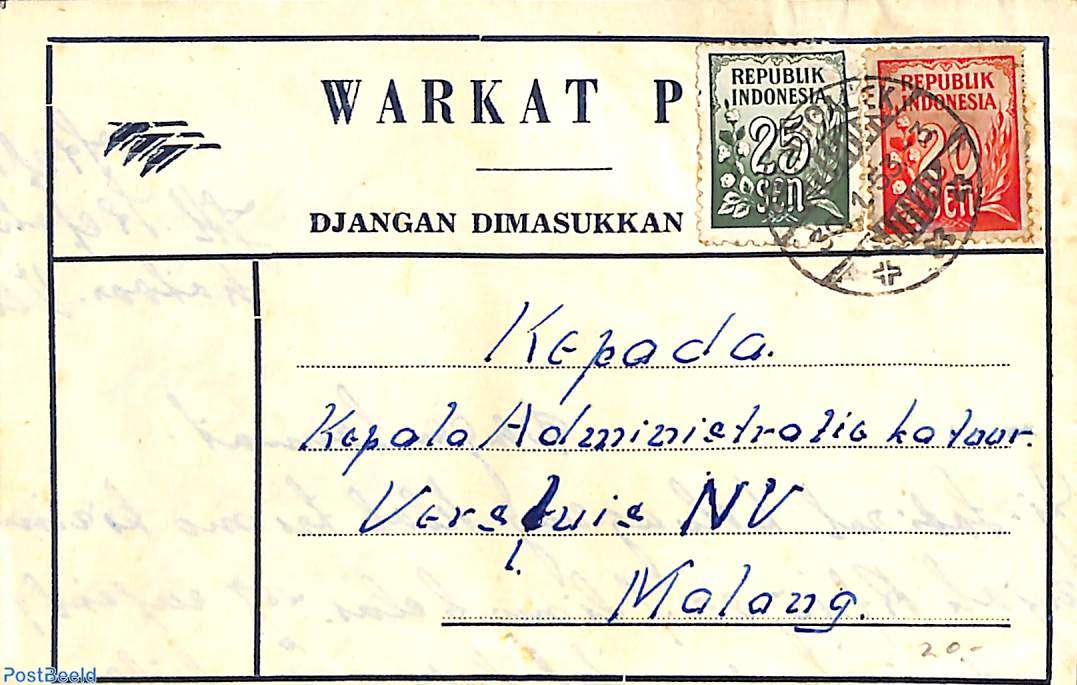 WARKAT P
DJANGAN DIMASUKKAN
REPUBLIK
INDONESIA
25
SEN
REPUBLIK
INDONESIA
20
SEN
Kepada.
Kepala Administratie katoor.
Versluis NV
Malang.
20.-
PostBeeld